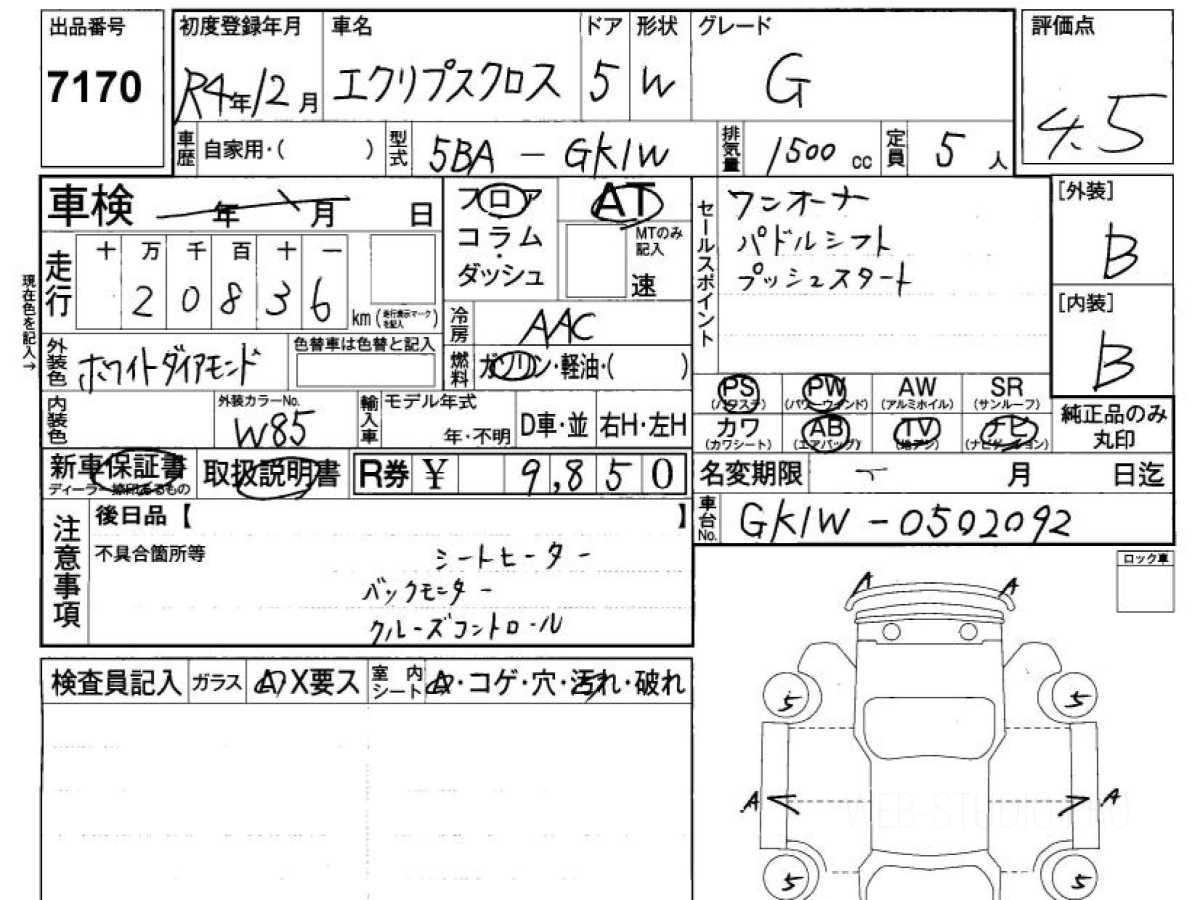 出品番号
7170
初度登録年月
R4年12月
車名
エクリプスクロス
ドア
5
形状
W
グレード
G
評価点
4.5
車歴
自家用・( )
型式
5BA-GK1W
排気量
1500 cc
定員
5 人
車検
年 月 日
走行
十 万 千 百 十 一
2 0 8 3 6
km (走行表示マークを記入)
現在色を記入→
外装色
ホワイトダイアモンド
色替車は色替と記入
内装色
外装カラーNo.
W85
フロア
コラム
・
ダッシュ
AT
MTのみ
記入
速
冷房
AAC
燃料
ガソリン・軽油・( )
輸入車
モデル年式
年・不明
D車・並
右H・左H
セールスポイント
ワンオーナー
パドルシフト
プッシュスタート
[外装]
B
[内装]
B
PS
(パワステ)
PW
(パワーウインド)
AW
(アルミホイル)
SR
(サンルーフ)
カワ
(カワシート)
AB
(エアバッグ)
TV
ナビ
(ナビゲーション)
純正品のみ
丸印
新車保証書
ディーラー捺印あるもの
取扱説明書
R券 ¥ 9,850
名変期限
月 日迄
車台No.
GK1W-0502092
注意事項
後日品【 】
不具合箇所等
シートヒーター
バックモニター
クルーズコントロール
ロック車
検査員記入
ガラス
A X要ス
室内
シート
A・コゲ・穴・汚れ・破れ
A A
5 5
A A
5 5
WEB-STUDIO.PRO